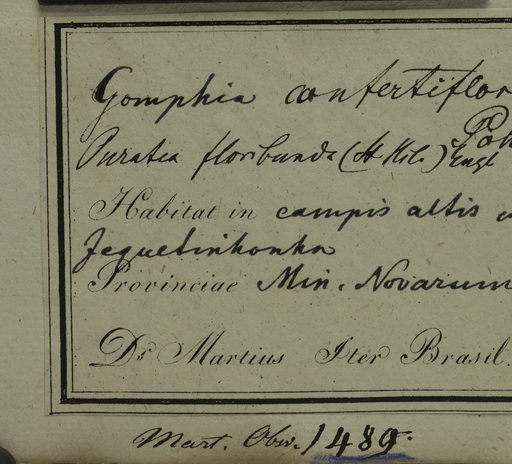 Gomphia confertiflor
Poh
Ouratea floribunda (St Hil.) Engl
Habitat in campis altis
Jequetinhonha
Provinciae Min. Novarum
Dr. Martius Iter Brasil.
Mart. Obs. 1489.